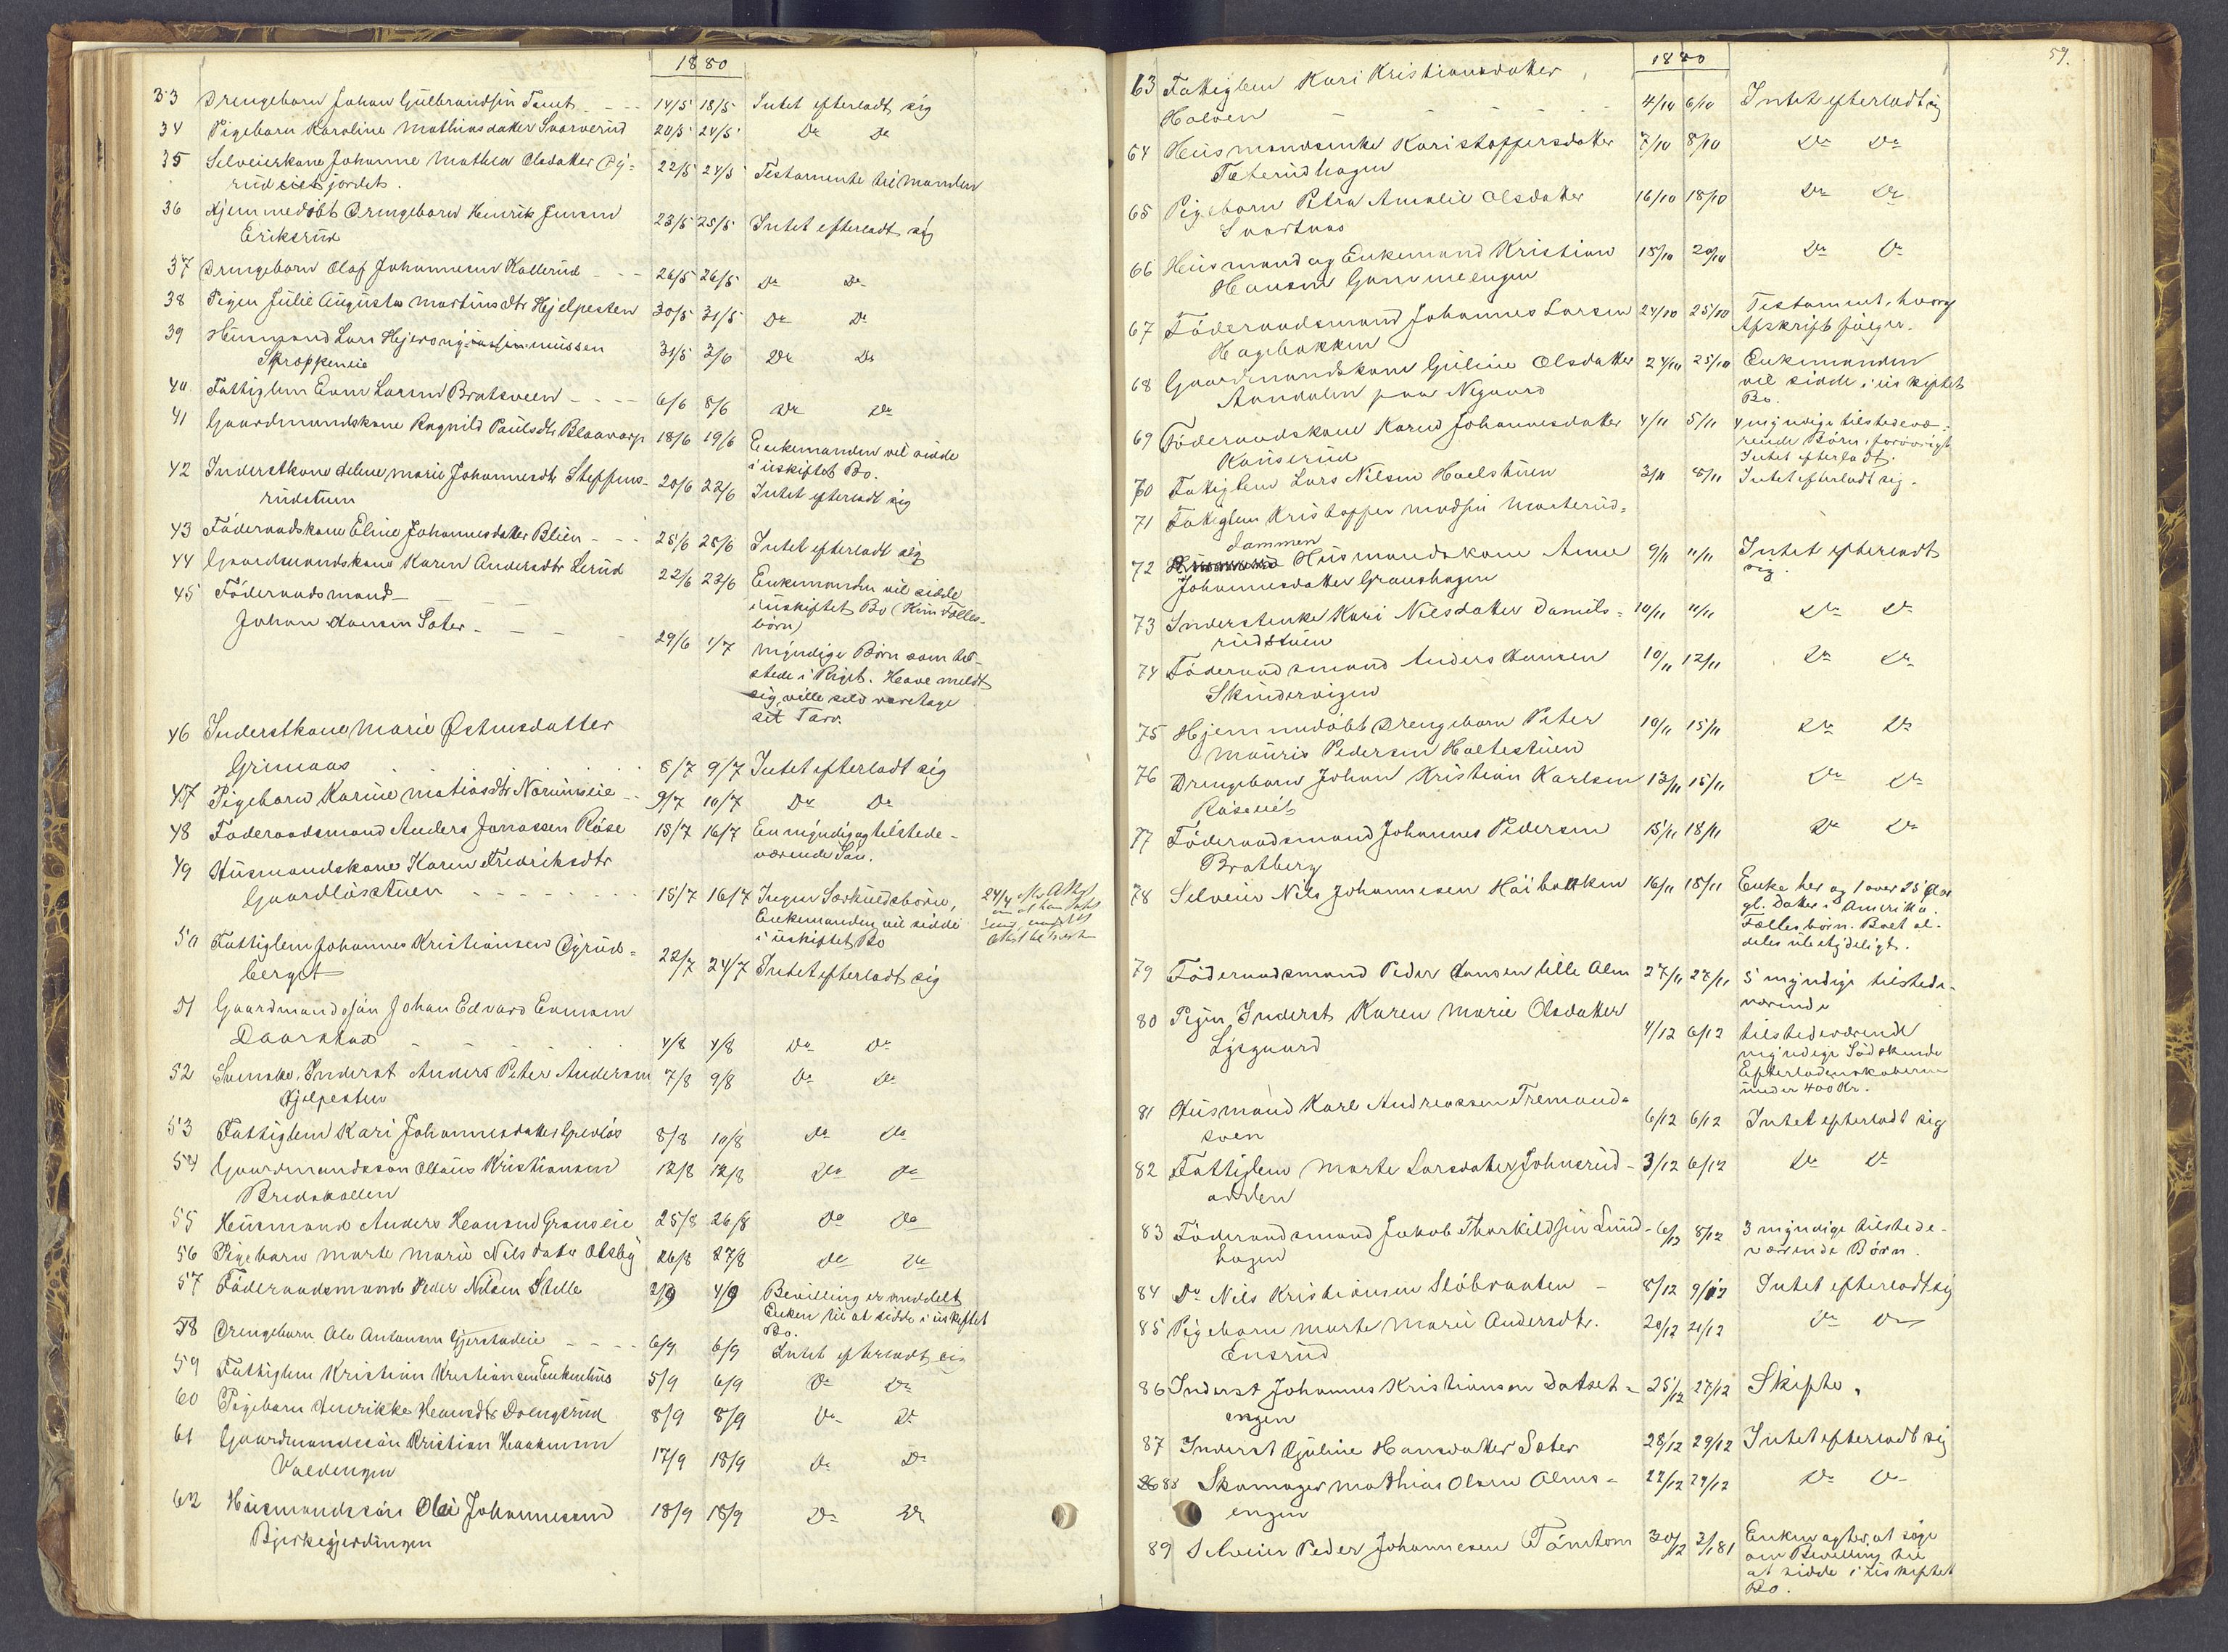 1880
33 Drengebarn Johan Gulbrandsen Tømt - - - 14/5 18/5 Intet efterladt sig
34 Pigebarn Karoline Mathiasdatter Svarverud 20/5 24/5 Do Do
35 Selveierkone Johanne Mathea Olsdatter By= 22/5 24/5 Testamente til Manden
rud jordet.
36 Hjemmedøbt Drengebarn Henrik Jensen 23/5 25/5 Intet efterladt sig
Eriksrud
37 Drengebarn Olaf Johannesen Kallerud - - - 26/5 26/5 Do Do
38 Pigen Julie Augusta Martinsdtr Hjelpesten 30/5 31/5 Do Do
39 Husmand Lars 31/5 3/6 Do Do
Skroppeneie
40 Fattiglem Even Larsen Bratsveen - - - - 6/6 8/6 Do Do
41 Gaardmandskone Ragnild Paulsdtr Blaavarp 18/6 19/6 Enkemanden vil sidde
i uskiftet Bo.
42 Inderstkone Marie Johannesdtr Steffens- 20/6 22/6 Intet efterladt sig
rudstuen
43 Föderaadskone Eline Johannesdatter Blien - - - 25/6 25/6 Intet efterladt sig
44 Gaardmandskone Karen Andersdtr Lerud 22/6 23/6 Enkemanden vil sidde
i uskiftet Bo (Kun Fælles-
börn)
45 Föderaadsmand
Johan Hansen Sater - - - - 29/6 1/7 Myndige Börn som til-
stede i Riget. Have meldt
sig, ville selv varetage
sit Tarv.
46 Inderstkone Marie Østensdatter
Grimaas 8/7 9/7 Intet efterladt sig
47 Pigebarn Karine Matiasdtr Narumseie - - 9/7 10/7 Do Do
48 Föderaadsmand Anders Jonassen Röse 15/7 16/7 En myndig og tilstede-
værende Sön.
49 Husmandskone Karen Fredriksdtr
Gaardlösstuen - - - - - - - 15/7 16/7 Ingen Særkuldsbörn,
Enkemanden vil sidde
i uskiftet Bo
24/4
50 Fattiglem Johannes Kristiansen Byrud= 22/7 24/7 Intet efterladt sig
berget
51 Gaardmandssön Johan Edvard Evensen
Daarstad 4/8 4/8 Do Do
52 Svenske, Inderst Anders Peter Andersen 7/8 9/8 Do Do
Hjelpesten
53 Fattiglem Kari Johannesdatter 8/8 10/8 Do Do
54 Gaardmandssön Olaus Kristiansen 12/8 12/8 Do Do
Bredskallen
55 Husmand Anders Hansen Granseie 25/8 26/8 Do Do
56 Pigebarn Marte Marie Nilsdatter Alsby 26/8 27/8 Do Do
57 Föderaadsmand Peder Nilsen Stelle 2/9 4/9 Bevilling er meddelt
Enken til at sidde i uskiftet
Bo.
58 Drengebarn Ole Antonsen Gjerstadeie - - - - 6/9 6/9 Intet efterladt sig
59 Fattiglem Kristian Kristiansen 5/9 6/9 Do Do
60 Pigebarn Henrikke Hansdtr 8/9 8/9 Do Do
61 Gaardmandssön Kristian Haakensen
Valdengen 17/9 18/9 Do Do
62 Husmandssön Ole Johannesen 18/9 18/9 Do Do
Bjerkegjerdingen
59.
1880
63 Fattiglem Kari Kristiansdatter
Holven 4/10 6/10 Intet efterladt sig
64 Husmandsenke Kari Stoffersdatter 7/10 8/10 Do Do
Tæterudhagen
65 Pigebarn Petra Amalie Olsdatter 16/10 18/10 Do Do
Svartnas
66 Husmand og Enkemand Kristian 15/10 20/10 Do Do
Hansen Gammeengen
67 Föderaadsmand Johannes Larsen 24/10 25/10 Testament, hvoraf
Hagebakken Afskrift fölger.
68 Gaardmandskone Guline Olsdatter 24/10 25/10 Enkemanden
Aandalen paa Nygaard vil sidde i uskiftet
Bo.
69 Föderaadskone Karen Johannesdatter 4/11 5/11 4 myndige tilstedevæ-
Kauserud rende Börn, forövrigt
Intet efterladt.
70 Fattiglem Lars Nilsen Haelstuen 3/11 8/11 Intet efterladt sig.
71 Fattiglem Kristoffer Madsen Marterud=
dammen
72 Husmandskone Anne 9/11 11/11 Intet efterladt
Johannesdatter Granshagen sig.
73 Inderstenke Kari Nilsdatter Daniels= 10/11 11/11 Do Do
rudstuen
74 Föderaadsmand Anders Hansen 10/11 12/11 Do Do
Skindervigen
75 Hjemmedöbt Drengebarn Peter 10/11 15/11 Do Do
Mauris Pedersen Holtestuen
76 Drengebarn Johan Kristian Karlsen 13/11 15/11 Do Do
Röseeiet
77 Föderaadsmand Johannes Pedersen 15/11 18/11 Do Do
Bratberg
78 Selveier Nils Johannesen Höibakken 16/11 18/11 Enke her og 1 over 25 Aar
gl. Datter i Amerika.
Fællesbörn. Boet al-
deles ubetydeligt.
79 Föderaadsmand Peder Hansen lille Alm 27/11 27/11 5 myndige tilstede-
værende
80 Pigen Inderst Karen Marie Olsdatter 4/12 6/12 tilstedeværende
Lysgaard myndige Södskende
Efterladenskaberne
under 400 Kr.
81 Husmand Karl Andreassen Tremands=
sven 6/12 6/12 Intet efterladt sig
82 Fattiglem Marte Larsdatter Johnsrud- 3/12 6/12 Do Do
odden
83 Föderaadsmand Jakob Thorkildsen Lund- 6/12 8/12 3 myndige tilstede-
hagen værende Börn.
84 Do Nils Kristiansen Stöbraaten - 8/12 9/12 Intet efterladt sig
85 Pigebarn Marte Marie Andersdtr. 20/12 21/12 Do Do
Ensrud
86 Inderst Johannes Kristiansen Datset- 25/12 27/12 Skifte.
engen
87 Inderst Guline Hansdatter Sater 28/12 29/12 Intet efterladt sig
88 Skomager Mathias Olsen Alms= 27/12 29/12 Do Do
engen
89 Selveier Peder Johannesen Tömton 30/12 3/1 81 Enken agter at söge
om Bevilling til
at sidde i uskiftet
Bo.